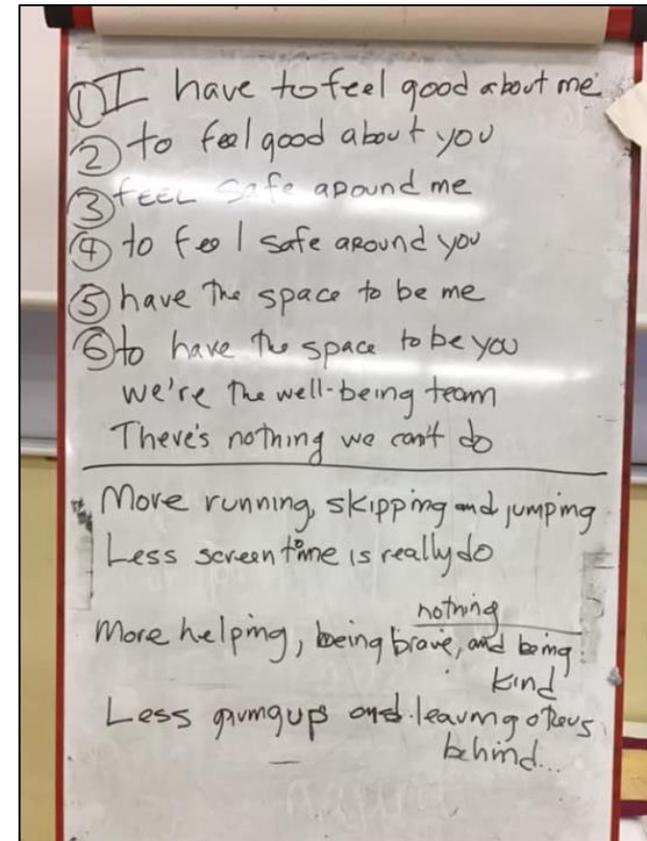 ① I have to feel good about me
② to feel good about you
③ FEEL Safe around me
④ to feel safe around you
⑤ have the space to be me
⑥ to have the space to be you
we're the well-being team
There's nothing we can't do
More running, skipping and jumping
Less screen time is really do
nothing
More helping, being brave, and being
kind
Less and leaving others
behind...